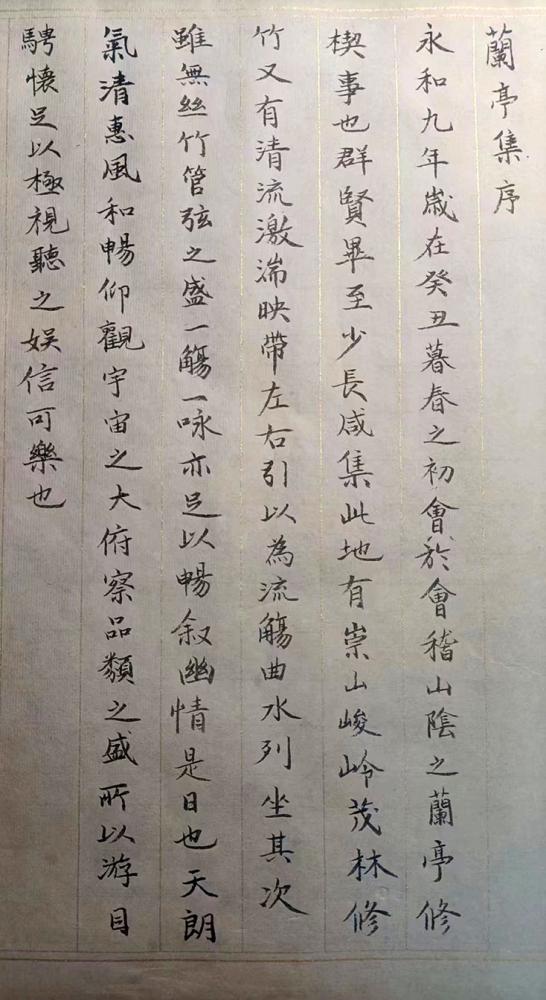 蘭亭集序
永和九年歲在癸丑暮春之初會於會稽山陰之蘭亭修
楔事也群賢畢至少長咸集此地有崇山峻岭茂林修
竹又有清流激湍映帶左右引以為流觴曲水列坐其次
雖無丝竹管弦之盛一觴一咏亦足以暢叙幽情是日也天朗
氣清惠風和暢仰觀宇宙之大俯察品類之盛所以游目
騁懷足以極視聽之娱信可樂也